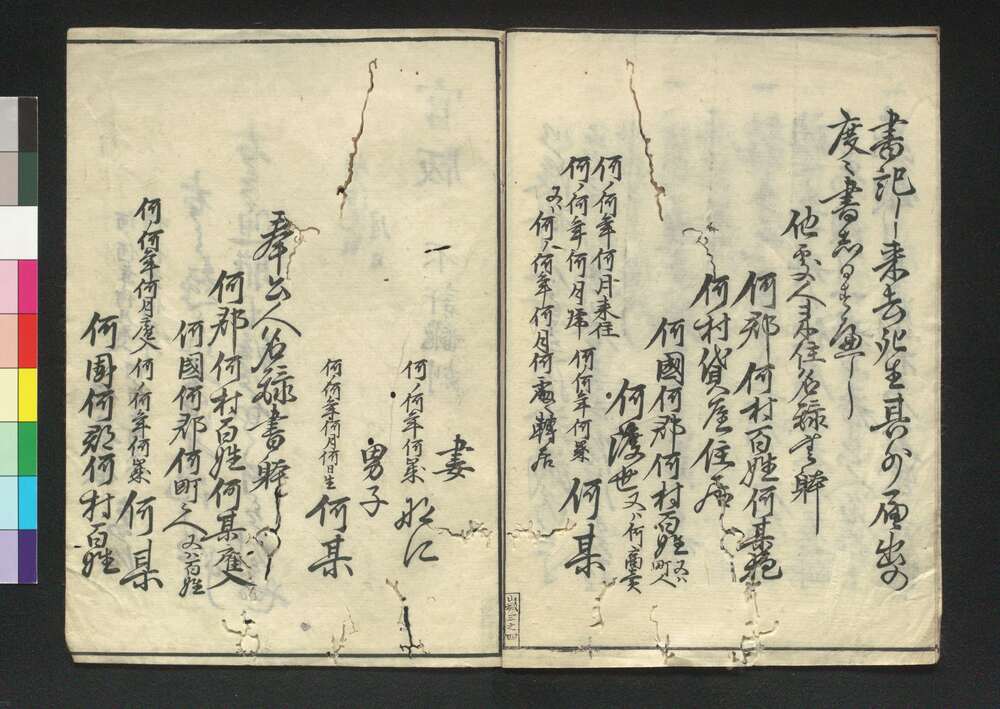 書記し来去死生其外届出の
度々書
他処人来住名録書時
何郡何村百姓何某
何村貸屋住居
何國何郡何村百姓又ハ町人
何渡世又ハ何商売
何ノ何年何月来住
何ノ何年何月 何何年何歳 何某
又ハ何ノ何年何月何處轉居
山城三之四
一
妻
何ノ何年何歳 如仁
男子
何何年何月何日生 何某
奉公人名録書時
何郡何村百姓何某雇人
何國何郡何町人又ハ百姓
何ノ何年何月雇入 何ノ何年何歳 何某
何國何郡何村百姓